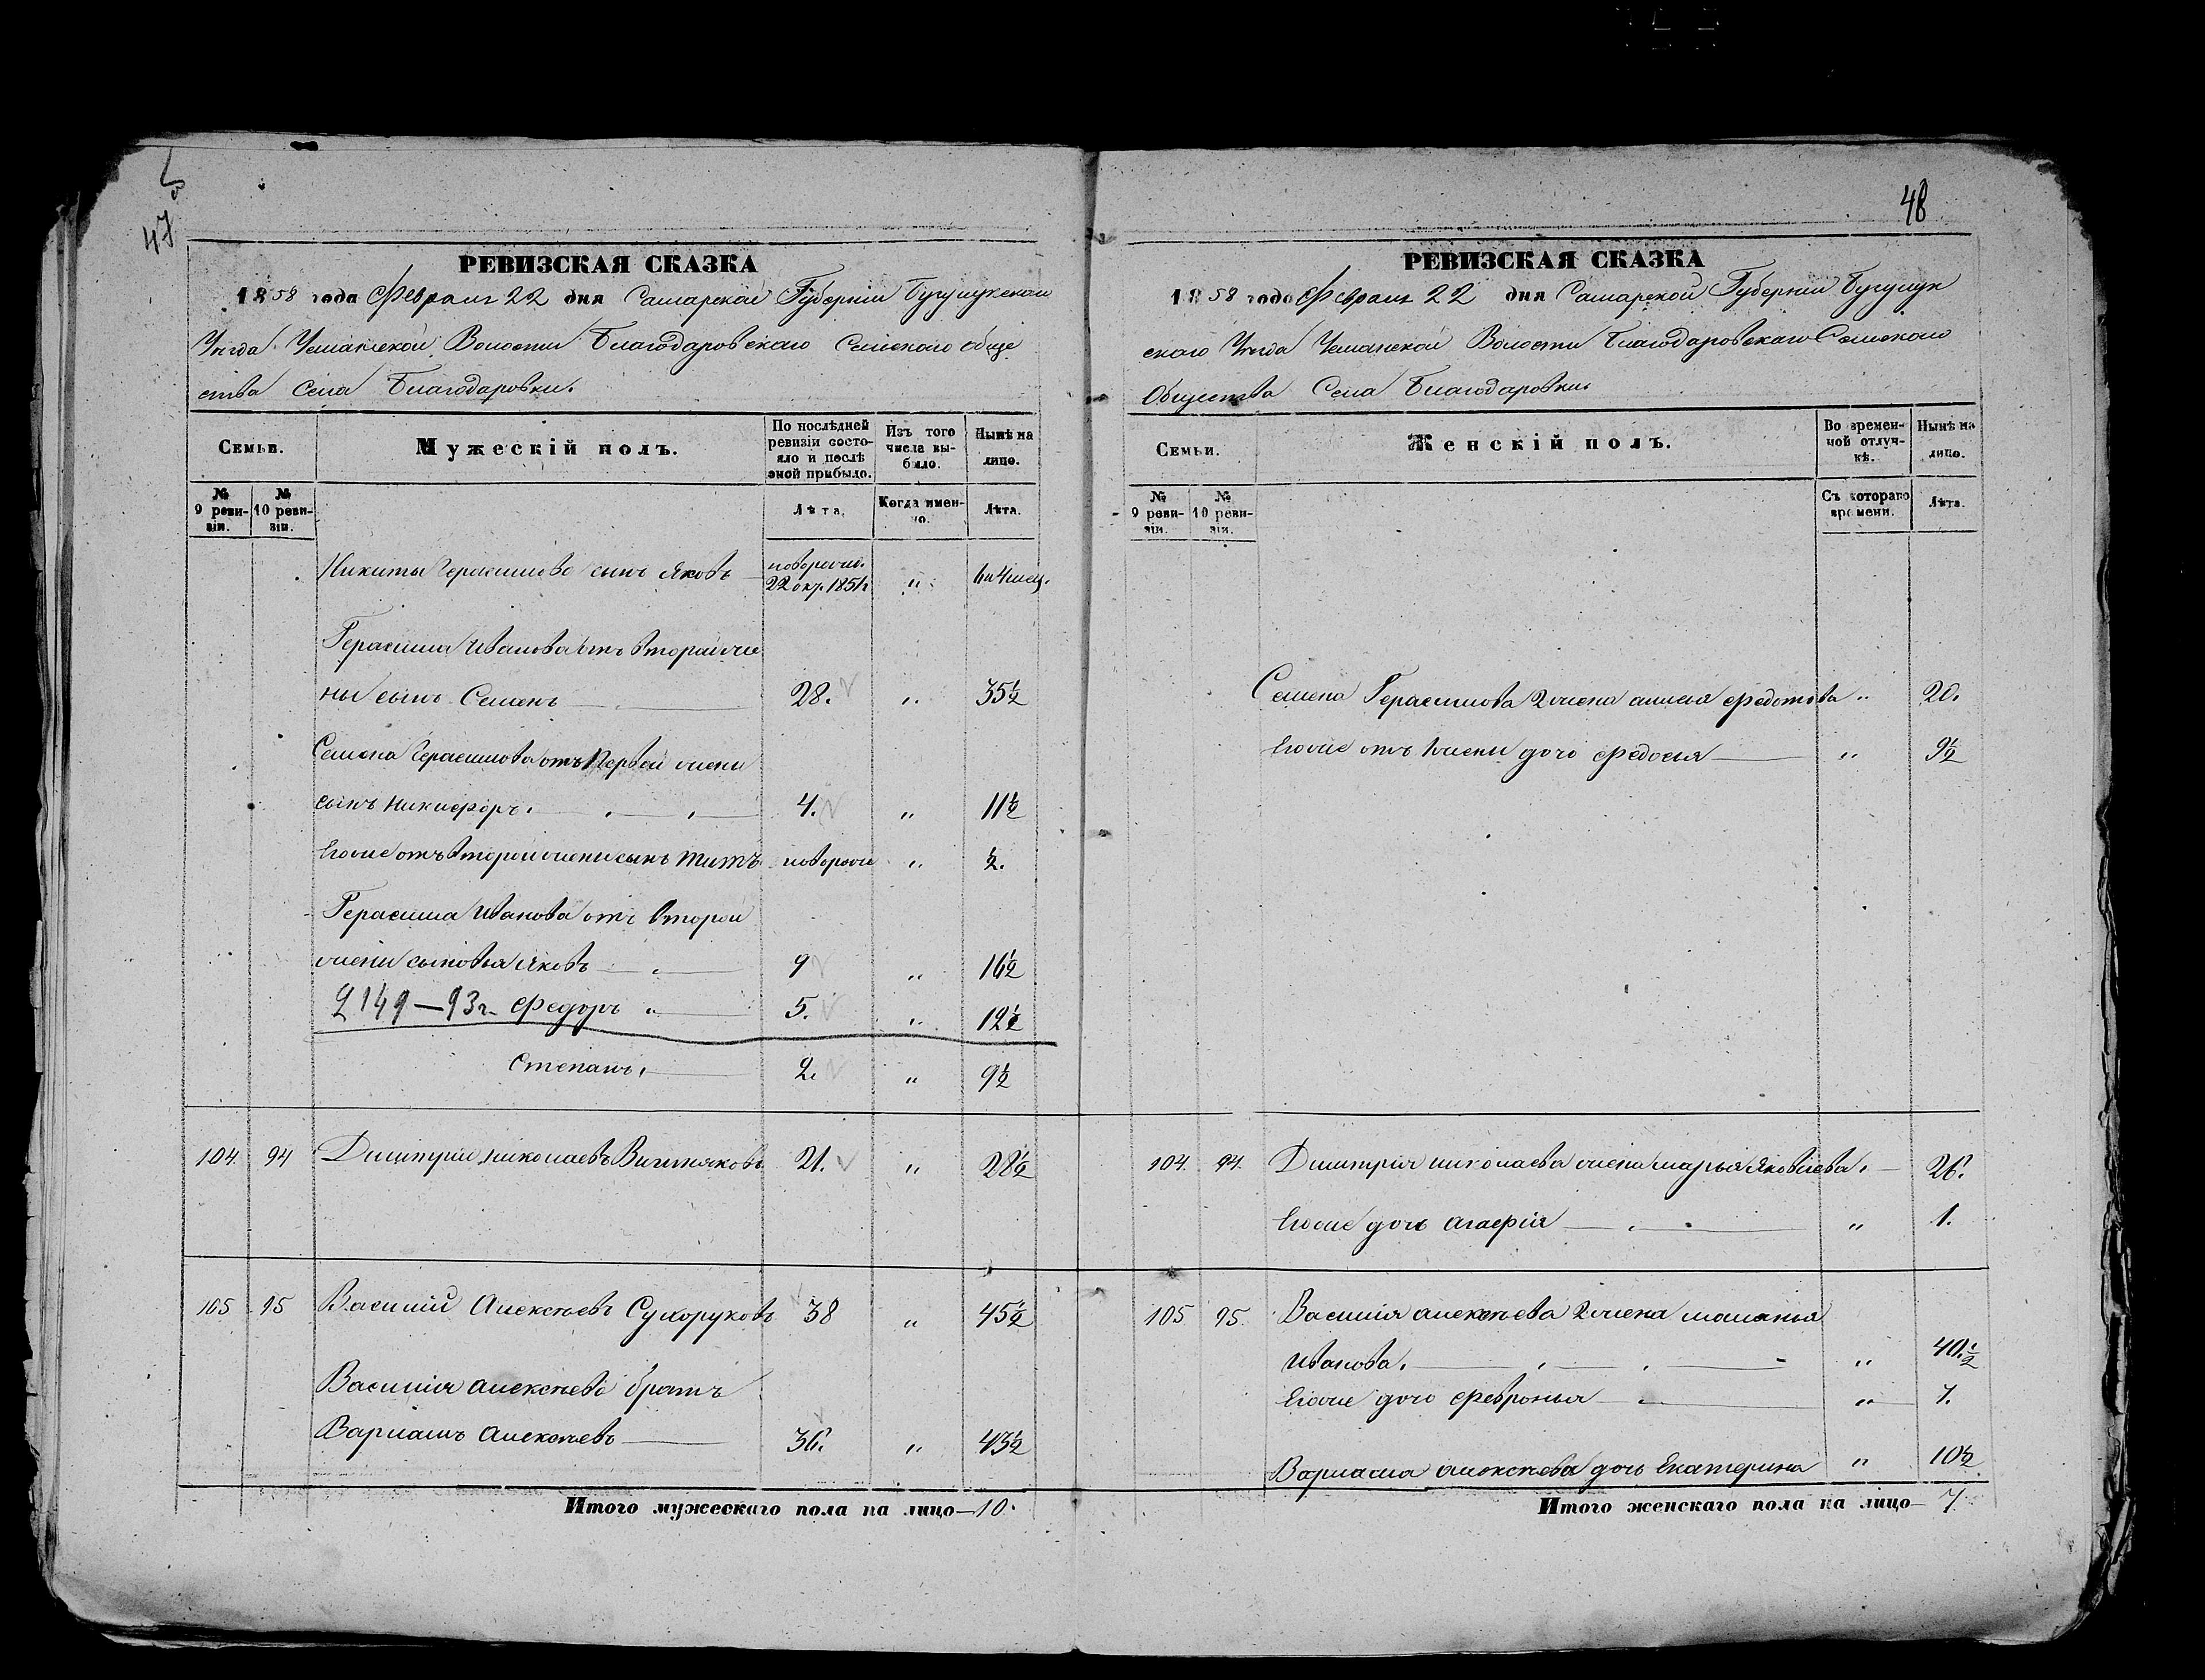 47
РЕВИЗСКАЯ СКАЗКА
1858 года Февраля 22 дня Самарской Губерніи Бугульмской
Уѣзда Волости Благодаровскаго Сельскаго обще
ства Села Благодаровки.
Семьи.
Мужескій полъ.
По послѣдней ревизіи состояло и послѣ оной прибыло.
Изъ того числа выбыло.
Нынѣ на лицо.
№ 9 ревизіи.
№ 10 ревизіи.
Лѣта.
Когда именно.
Лѣта.
Никиты Герасимова сынъ Яковъ новорожд. 22 окр. 185 " и 4 мец.
Герасима Иванова отъ второй же
ны сынъ Семенъ 28. " 35½
Семена Герасимова отъ первой жены
сынъ Никифоръ. 4. " 11½
Егоже отъ второй жены сынъ Титъ новорож " ½.
Герасима Иванова отъ второй
жены сыновья Яковъ 9 " 16½
2149—93г. Федоръ " 5. " 12½
Степанъ, 2. " 9½
104. 94 Димитрій Николаевъ Вишняковъ 21. " 28½
105 95 Василий Алексѣевъ Сухоруковъ 38 " 45½
Василия Алексѣева братъ
Варламъ Алексѣевъ 36. " 43½
Итого мужескаго пола на лицо—10.
48
РЕВИЗСКАЯ СКАЗКА
1858 года Февраля 22 дня Самарской Губерніи
скаго Уѣзда Волости Благодаровскаго Сельскаго
Общества Села Благодаровки
Семьи.
Женскій полъ.
Во временной отлучкѣ.
Нынѣ на лицо.
№ 9 ревизіи.
№ 10 ревизіи.
Съ котораго времени.
Лѣта.
Семена Герасимова 2 жена Федотова " 20.
Егоже отъ 1 жены дочь Федосья " 9½
104. 94. Димитрія Николаева жена Марья Яковлева. 26.
Егоже дочь Агафія " 1.
105 95. Василия Алексѣева 2 жена Маланья
Иванова. " 40.½
Егоже дочь Февронья " 7.
Варлама Алексѣева дочь Екатерина " 10½
Итого женскаго пола на лицо— 7